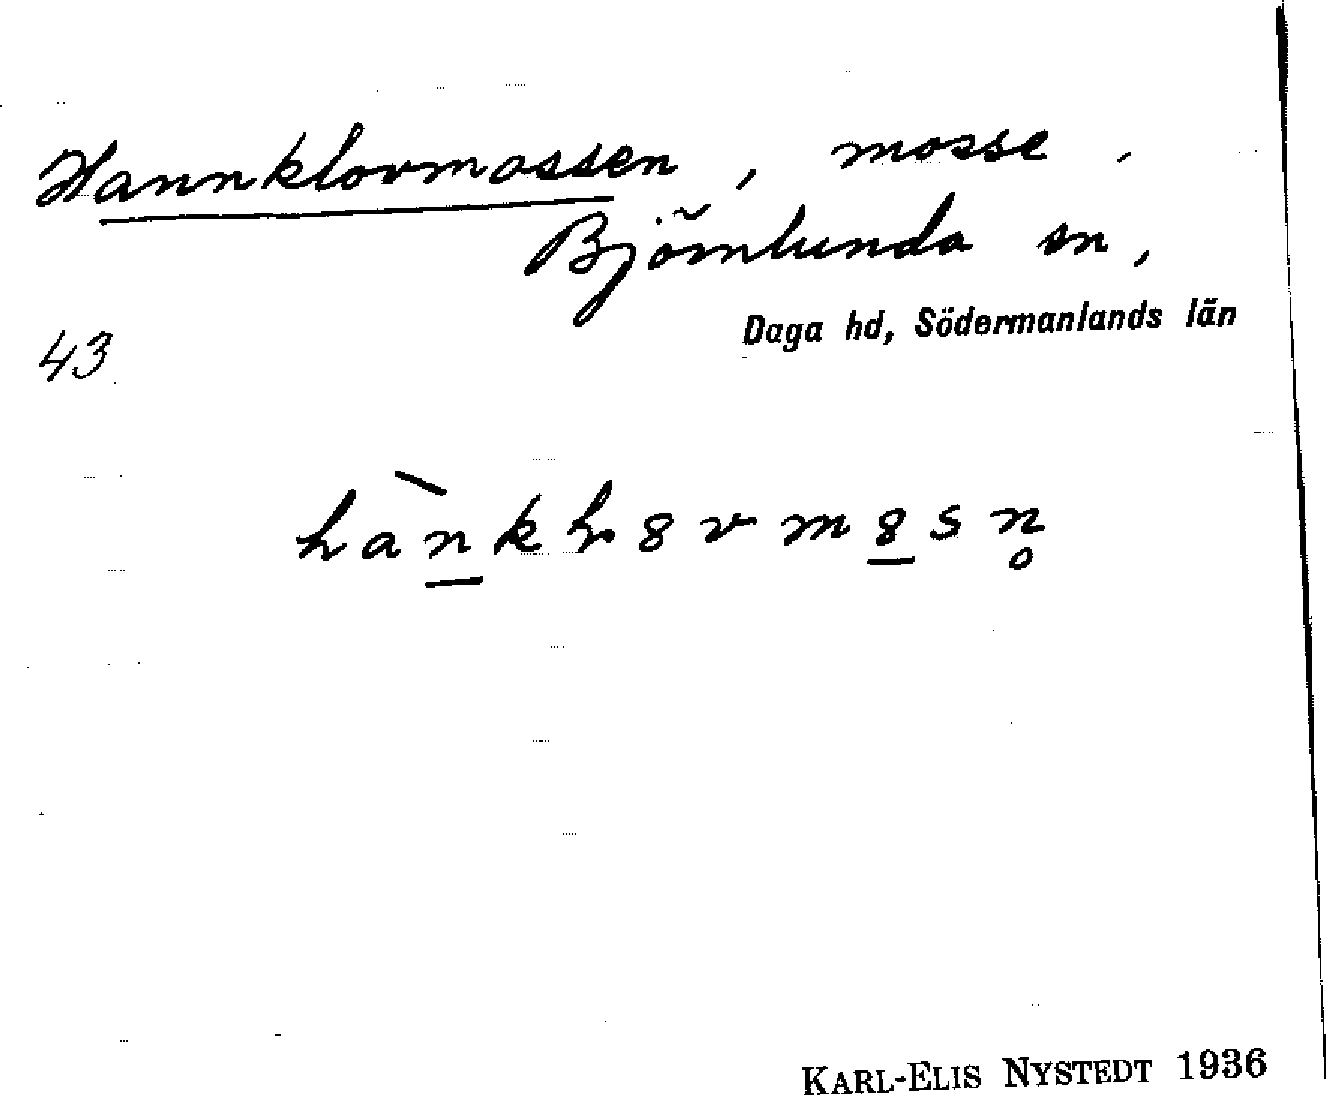 Hannklovmossen, mosse,
Björnlunda sn,
Daga hd, Södermanlands län
43
KARL-ELIS NYSTEDT 1936